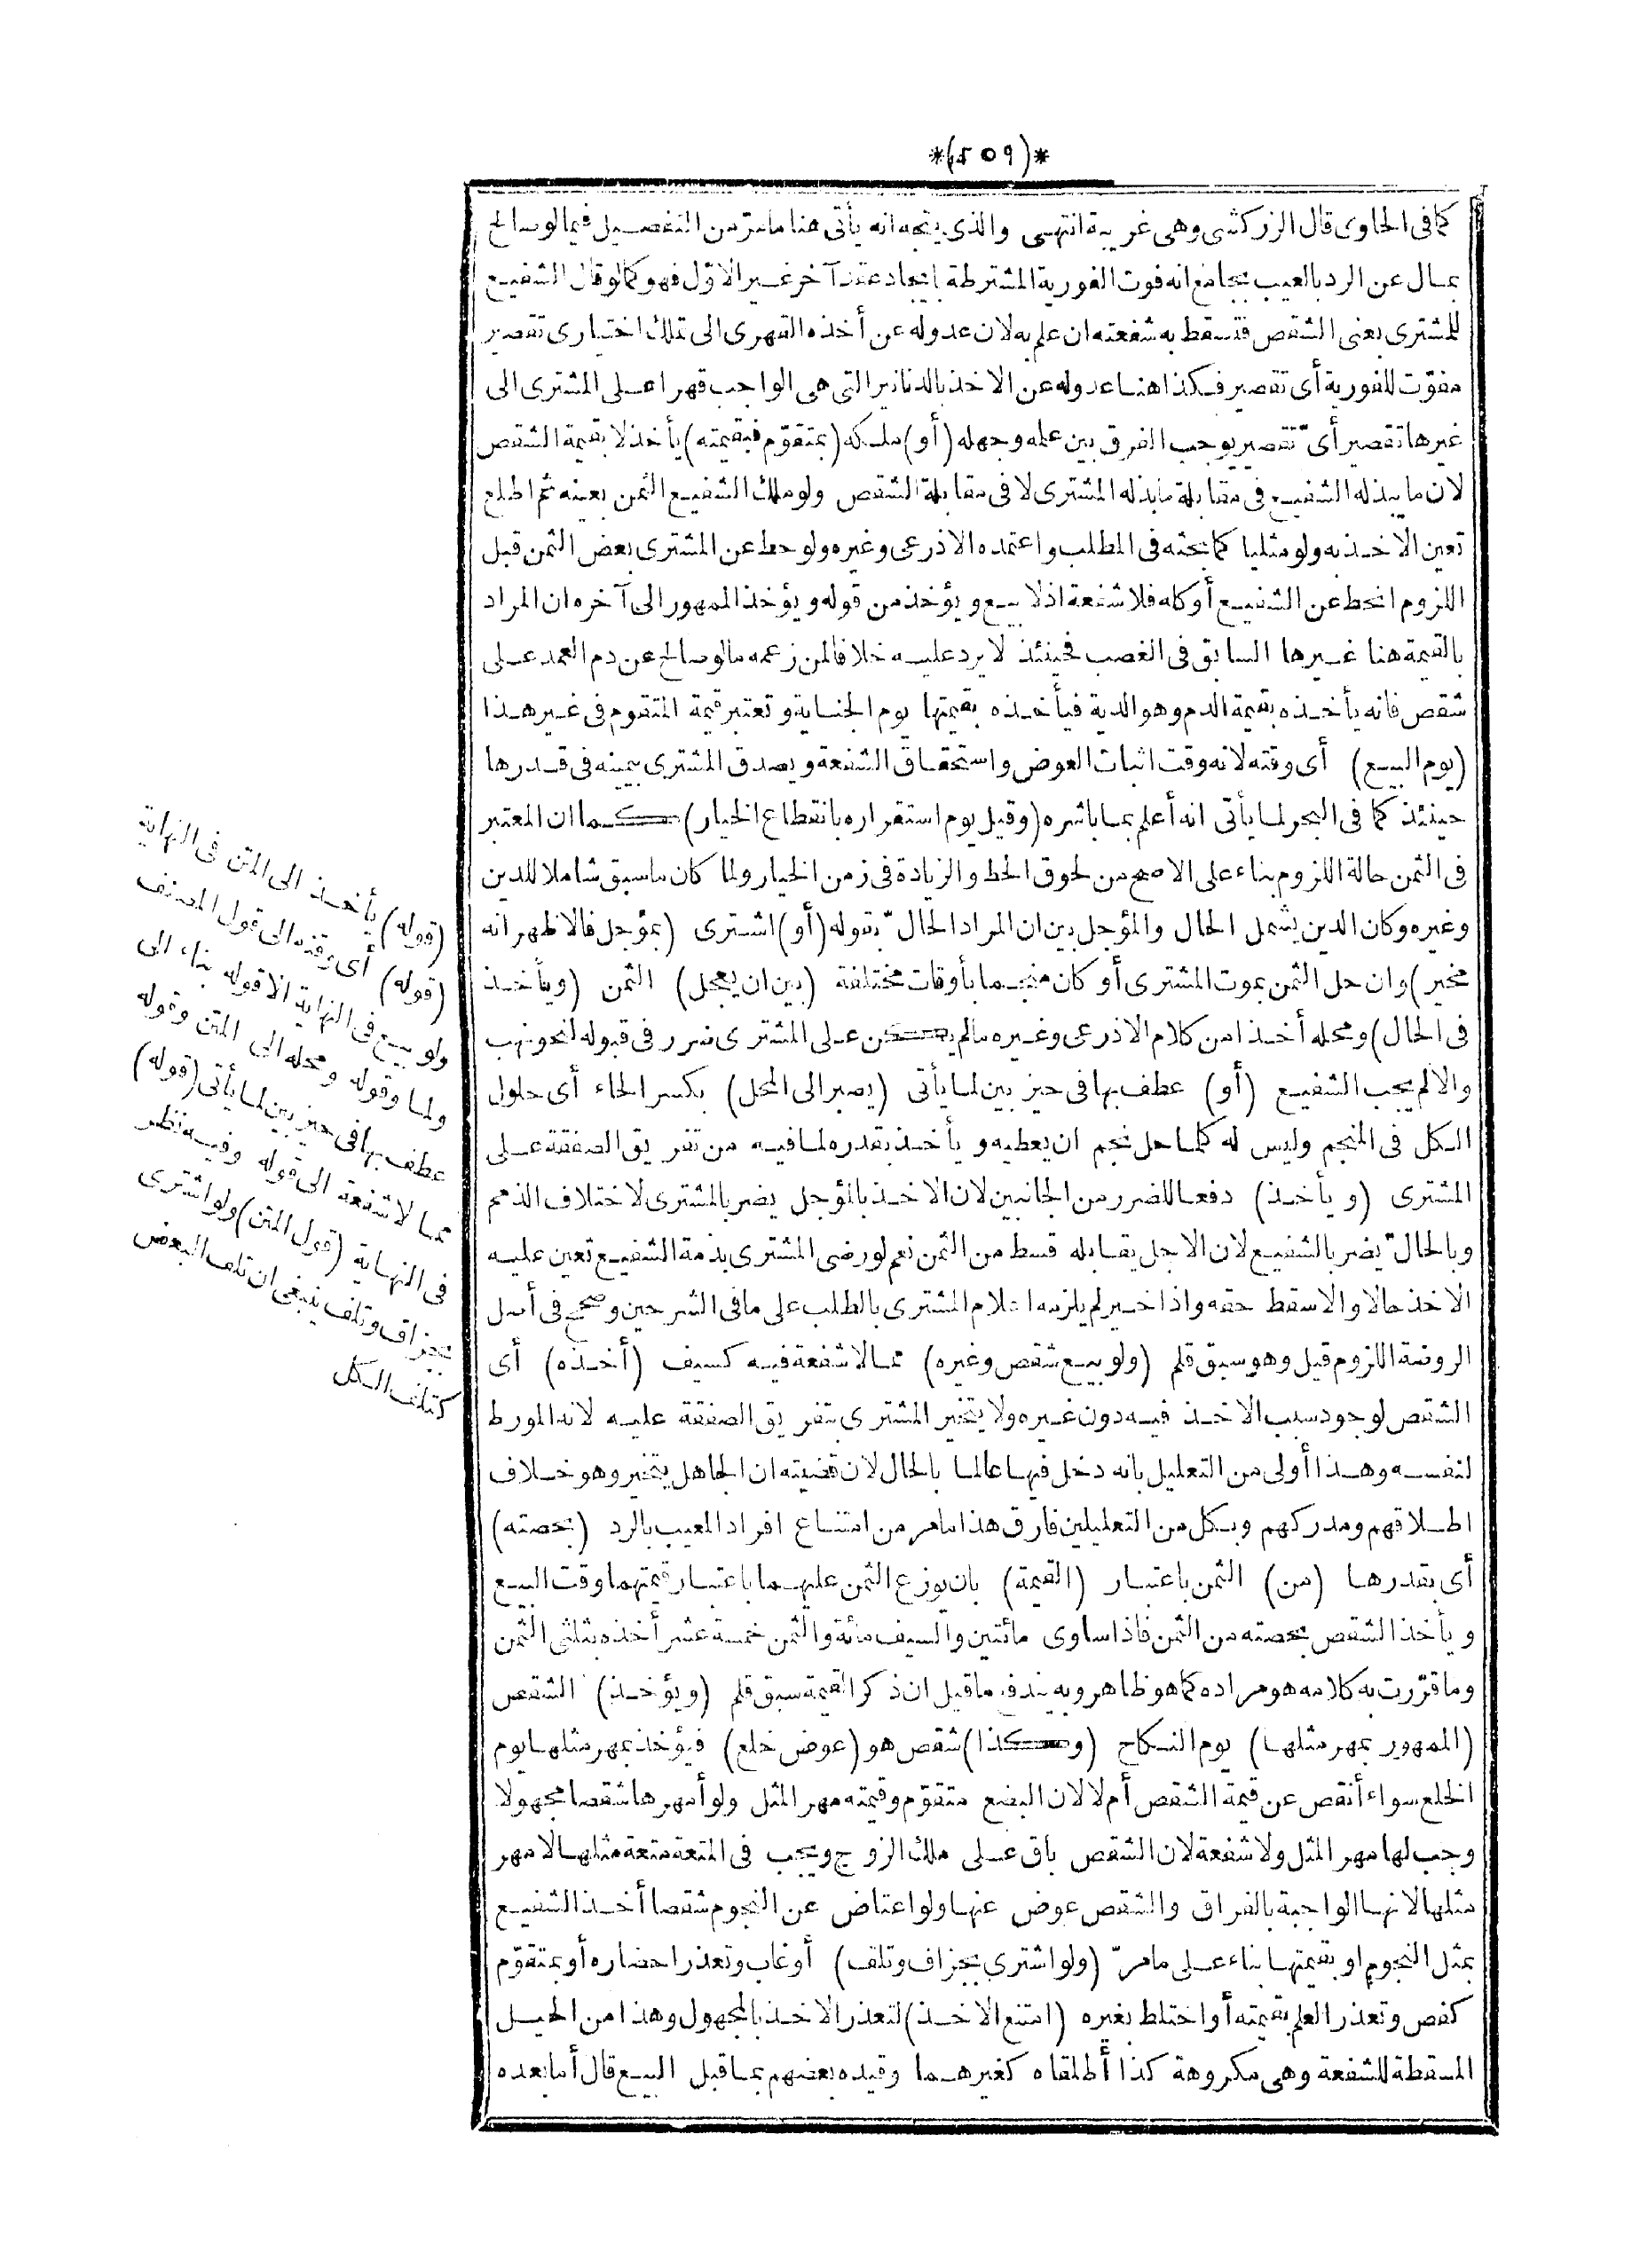 *(٤٥٩)*
كما فى الحاوى قال الزركشى وهى غريبة انتهى والذى يتجه انه يأتى هنا ما مرّ من التفصيل فيما لو صالح
بمال عن الرد بالعيب بجامع انه فوت الفورية المشترطة بايجاد عقد آخر غير الاوّل فهو كما لو قال الشفيع
للمشترى بعنى الشقص فتسقط به شفعته ان علم به لان عدوله عن أخذه القهرى الى تملك اختيارى تقصير
مفوّت للفورية أى تقصير فكذا هنا عدوله عن الاخذ بالدنانير التى هى الواجب قهرا على المشترى الى
غيرها تقصير أىّ تقصير يوجب الفرق بين علمه وجهله (أو) ملكه (بمتقوّم فبقيمته) يأخذ لا بقيمة الشقص
لان ما يبذله الشفيع فى مقابلة ما بذله المشترى لا فى مقابلة الشقص ولو ملك الشفيع الثمن بعينه ثم اطلع
تعين الاخذ به ولو مثليا كما بحثه فى المطلب واعتمده الاذرعى وغيره ولو حط عن المشترى بعض الثمن قبل
اللزوم انحط عن الشفيع أو كله فلا شفعة اذ لا بيع ويؤخذ من قوله ويؤخذ الممهور الى آخره ان المراد
بالقيمة هنا غيرها السابق فى الغصب فحينئذ لا يرد عليه خلافا لمن زعمه ما لو صالح عن دم العمد على
شقص فانه يأخذه بقيمة الدم وهو الدية فيأخذه بقيمتها يوم الجناية وتعتبر قيمة المتقوم فى غير هذا
(يوم البيع) أى وقته لانه وقت اثبات العوض واستحقاق الشفعة ويصدق المشترى بيمينه فى قدرها
حينئذ كما فى البحر لما يأتى انه أعلم بما باشره (وقيل يوم استقراره بانقطاع الخيار) كما ان المعتبر
فى الثمن حالة اللزوم بناء على الاصح من لحوق الحط والزيادة فى زمن الخيار ولما كان ما سبق شاملا للدين
وغيره وكان الدين يشمل الحال والمؤجل بين ان المراد الحالّ بقوله (أو) اشترى (بمؤجل فالاظهر انه
مخير) وان حل الثمن بموت المشترى أو كان منجما بأوقات مختلفة (بين ان يعجل) الثمن (ويأخذ
فى الحال) ومحله أخذا من كلام الاذرعى وغيره ما لم يكن على المشترى ضرر فى قبوله لنحو نهب
والا لم يجب الشفيع (أو) عطف بها فى حيز بين لما يأتى (يصبر الى المحل) بكسر الحاء أى حلول
الكل فى المنجم وليس له كلما حل نجم ان يعطيه ويأخذ بقدره لما فيه من تفريق الصفقة على
المشترى (ويأخذ) دفعا للضرر من الجانبين لان الاخذ بالمؤجل يضر بالمشترى لاختلاف الذمم
وبالحالّ يضر بالشفيع لان الاجل يقابله قسط من الثمن نعم لو رضى المشترى بذمة الشفيع تعين عليه
الاخذ حالا والا سقط حقه واذا خير لم يلزمه اعلام المشترى بالطلب على ما فى الشرحين وصحح فى أصل
الروضة اللزوم قيل وهو سبق قلم (ولو بيع شقص وغيره) مما لا شفعة فيه كسيف (أخذه) أى
الشقص لوجود سبب الاخذ فيه دون غيره ولا يتخير المشترى بتفريق الصفقة عليه لانه المورط
لنفسه وهذا أولى من التعليل بانه دخل فيها عالما بالحال لان قضيته ان الجاهل يتخير وهو خلاف
اطلاقهم ومدركهم وبكل من التعليلين فارق هذا ما مر من امتناع افراد المعيب بالرد (بحصته)
أى بقدرها (من) الثمن باعتبار (القيمة) بان يوزع الثمن عليهما باعتبار قيمتهما وقت البيع
ويأخذ الشقص بحصته من الثمن فاذا ساوى مائتين والسيف مائة والثمن خمسة عشر أخذه بثلثى الثمن
وما قرّرت به كلامه هو مراده كما هو ظاهر وبه يندفع ما قيل ان ذكر القيمة سبق قلم (ويؤخذ) الشقص
(الممهور بمهر مثلها) يوم النكاح (وكذا) شقص هو (عوض خلع) فيؤخذ بمهر مثلها يوم
الخلع سواء أنقص عن قيمة الشقص أم لا لان البضع متقوّم وقيمته مهر المثل ولو أمهرها شقصا مجهولا
وجب لها مهر المثل ولا شفعة لان الشقص باق على ملك الزوج ويجب فى المتعة متعة مثلها لا مهر
مثلها لانها الواجبة بالفراق والشقص عوض عنها ولو اعتاض عن النجوم شقصا أخذ الشفيع
بمثل النجوم او بقيمتها بناء على ما مرّ (ولو اشترى بجزاف وتلف) أو غاب وتعذر احضاره أو بمتقوّم
كفص وتعذر العلم بقيمته أو اختلط بغيره (امتنع الاخذ) لتعذر الاخذ بالمجهول وهذا من الحيل
المسقطة للشفعة وهى مكروهة كذا أطلقاه كغيرهما وقيده بعضهم بما قبل البيع قال أما بعده
(قوله) يأخذ الى المتن فى النهاية
(قوله) أى وقته الى قول المصنف
ولو بيع فى النهاية الا قوله بناء الى
ولما وقوله ومحله الى المتن وقوله
عطف بها فى حيز بين لما يأتى (قوله)
مما لا شفعة الى قوله وفيه نظر
فى النهاية (قول المتن) ولو اشترى
بجزاف وتلف ينبغى ان تلف البعض
كتلف الكل